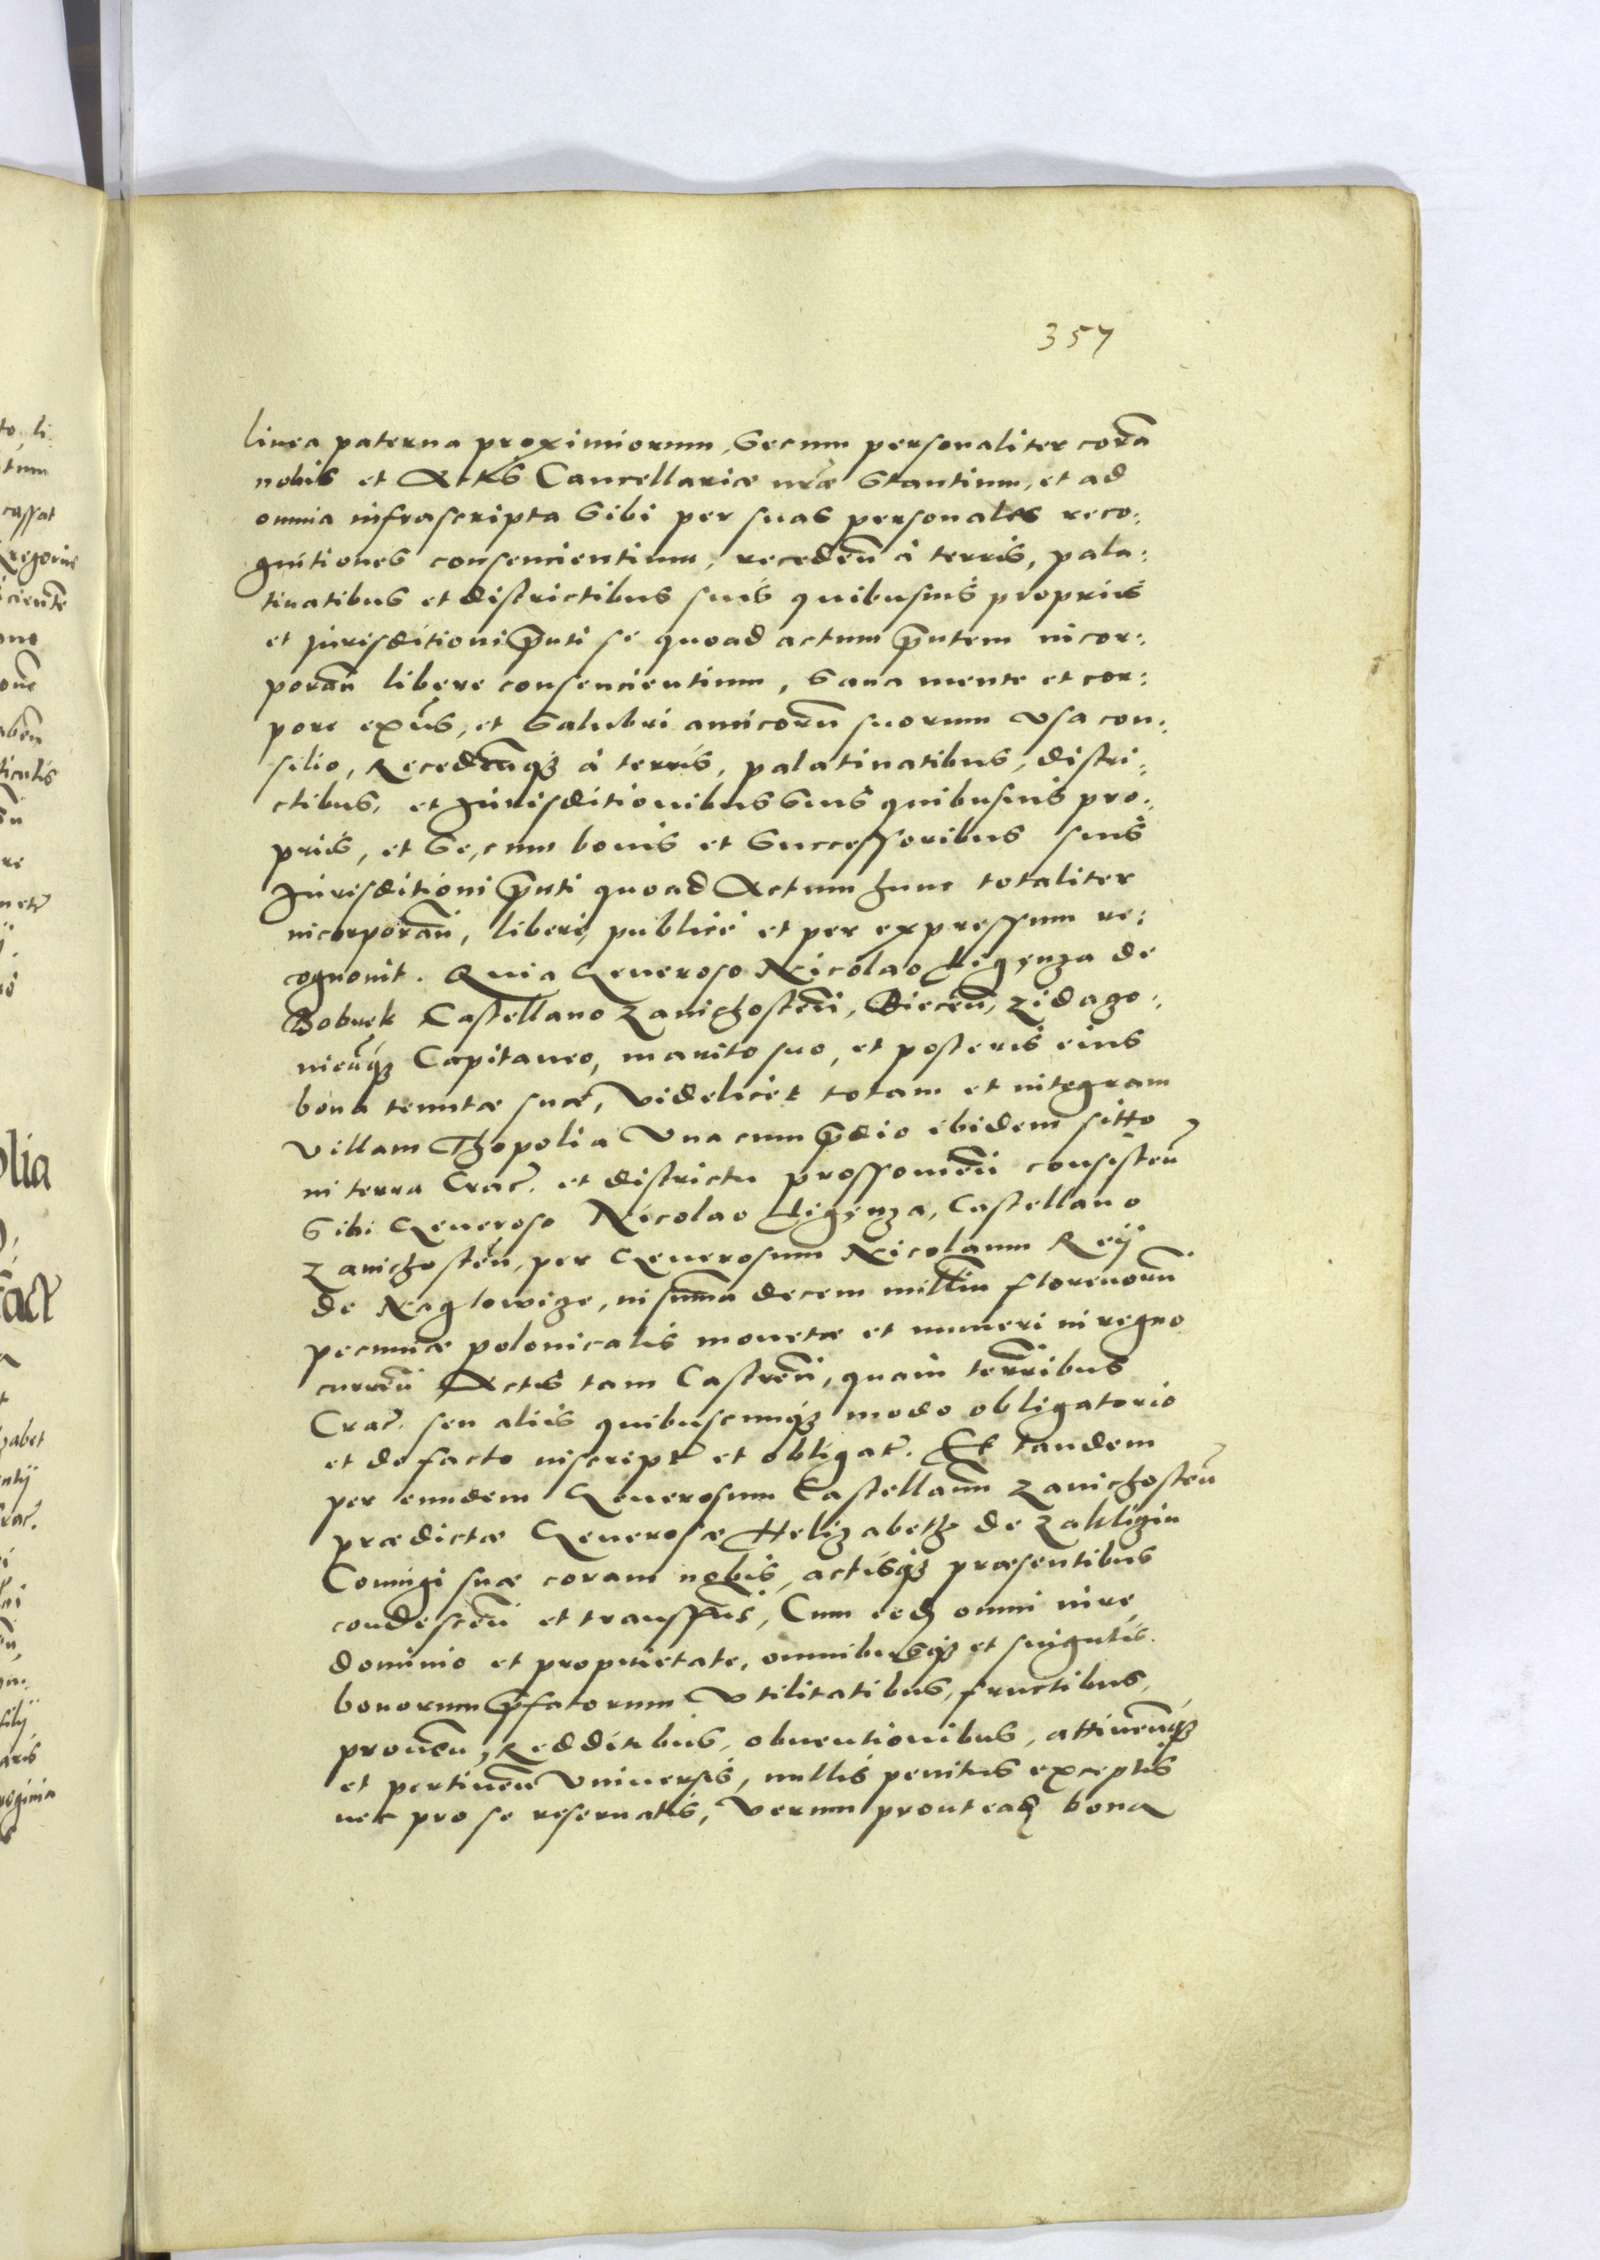 357
linea paterna proximiorum, secum personaliter corā
nobis et Actis Cancellariæ nr̄æ stantium, et ad
omnia infrascripta sibi per suas personales reco:
gnitiones consencientium, receden̄ à terris, pala:
tinatibus et districtibus suis quibusuis propriis
et jurisditioni p̄nti se quoad actum p̄ntem incor:
poran̄ libere consencientium, sana mente et cor:
pore exn̄s, et salubri amicorū suorum vsa con:
silio, Recedenq̄ȝ à terris, palatinatibus, distri:
ctibus, et Jurisditionibus suis quibusuis pro:
priis, et se, cum bonis et successoribus suis
Jurisditioni p̄nti quoad Actum hunc totaliter
incorporan̄, libere, publice et per expressum re:
cognouit. Quia Generoso Nicolao Ligęnza de
Bobrek Castellano Zauichosten̄, Biecen̄, Zidaʒo:
uien̄qȝ Capitaneo, marito suo, et posteris eius
bona tenutæ suæ, videlicet totam et integram
villam Thopolia vna cum p̄dio ibidem sitto
in terra Crac̄. et districtu prossouien̄ consisten̄
sibi Generoso Nicolao Ligęnza, Castellano
Zauichosten̄, per Generosum Nicolaum Reÿ
de Naglowize, in sum̄a decem milliu florenorū
pecuniæ polonicalis monetæ et numeri in regno
curren̄ Actis tam Castren̄, quam terr̄ribus
Crac̄. seu aliis quibuscunqȝ modo obligatorio
et de facto inscript̄ et obligat̄. Et tandem
per eundem Generosum Castellanū Zauichosten̄
prædictæ Generosæ Helizabeth de Zakliʒin
Coniugi suæ coram nobis, actisqȝ præsentibus
condescen̄ et transfus̄, Cum eod̄ omni iure
dominio et proprietate, omnibusqȝ et singulis
bonorum p̄fatorum vtilitatibus, fructibus,
prouen̄, Redditibus, obuentionibus, attinen̄qȝ
et pertinen̄ vniuersis, nullis penitus exceptis
nec pro se reseruatis, verum prout ead̄ bona